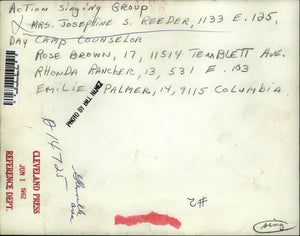 Action Singing Group
x Mrs. Josephine S. Reeder, 1133 E. 125,
Day Camp Counselor
Rose Brown, 17, 11514 Temblett Ave.
Rhonda Rancher, 13, 531 E. 133
Emilie Palmer, 14, 9115 Columbia.
PHOTO BY BILL NUNEZ
CLEVELAND PRESS
JUN 1 1962
REFERENCE DEPT.
#2
sing